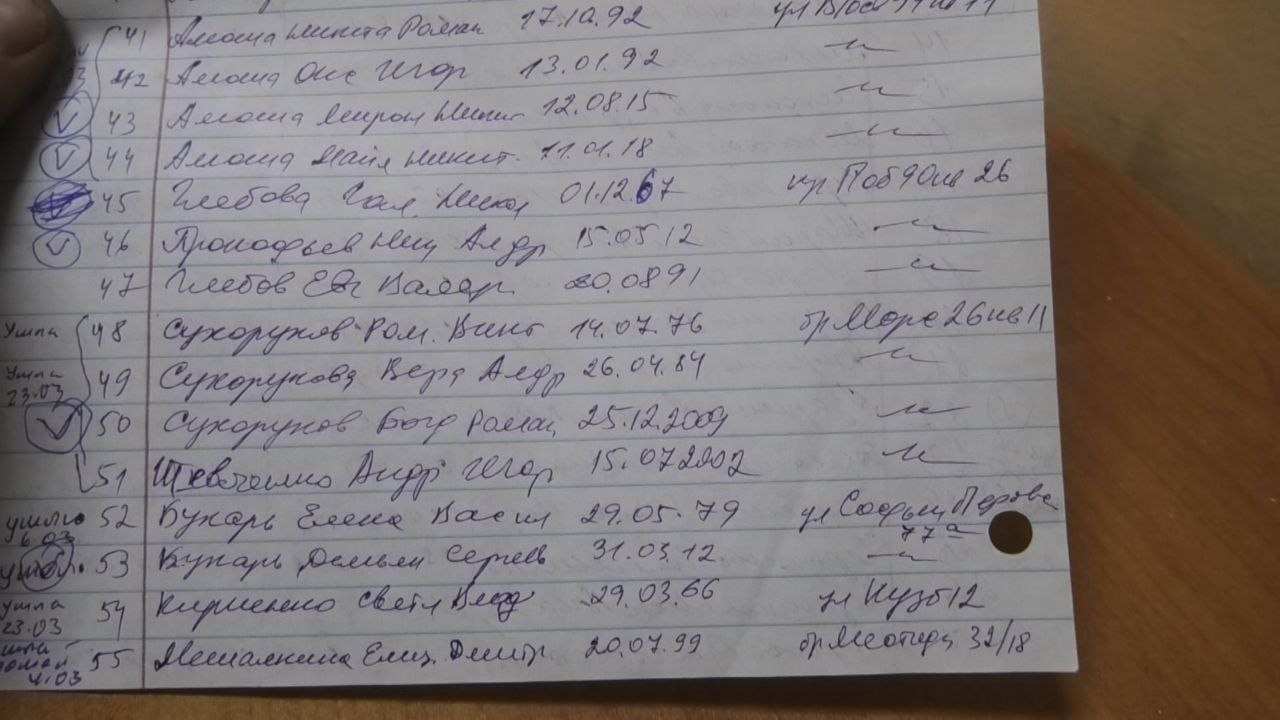 41 Амоша Никита Роман 17.10.92
42 Амоша Окс Игор 13.01.92 —"—
43 Амоша Мирон Никит 12.08.15 —"—
44 Амоша Майя Никит. 11.01.18 —"—
45 Глебова Гал. Никол 01.12.67 пр Поб 90 кв 26
46 Прокофьев Ник Алдр 15.05.12 —"—
47 Глебов Евг Валер. 20.08 91 —"—
Ушла 48 Сухоруков Ром. Викт 14.07.76 бр Морс 26 кв 11
Ушла 23.03 49 Сухорукова Вера Алдр 26.04.84 —"—
50 Сухоруков Богд Роман 25.12.2009 —"—
51 Шевченко Андр Игор 15.07 2002 —"—
6.03 52 Букарь Елена Васил 29.05.79 ул Софьи Перовс 77а
53 Букарь Демьян Сергеев 31.03.12 —"—
ушла 23.03 54 Кириенко Свет Влад 29.03.66 ул Кузб 12
4.03 55 Елиз. Дмитр 20.07.99 бр Меотиды 32/18